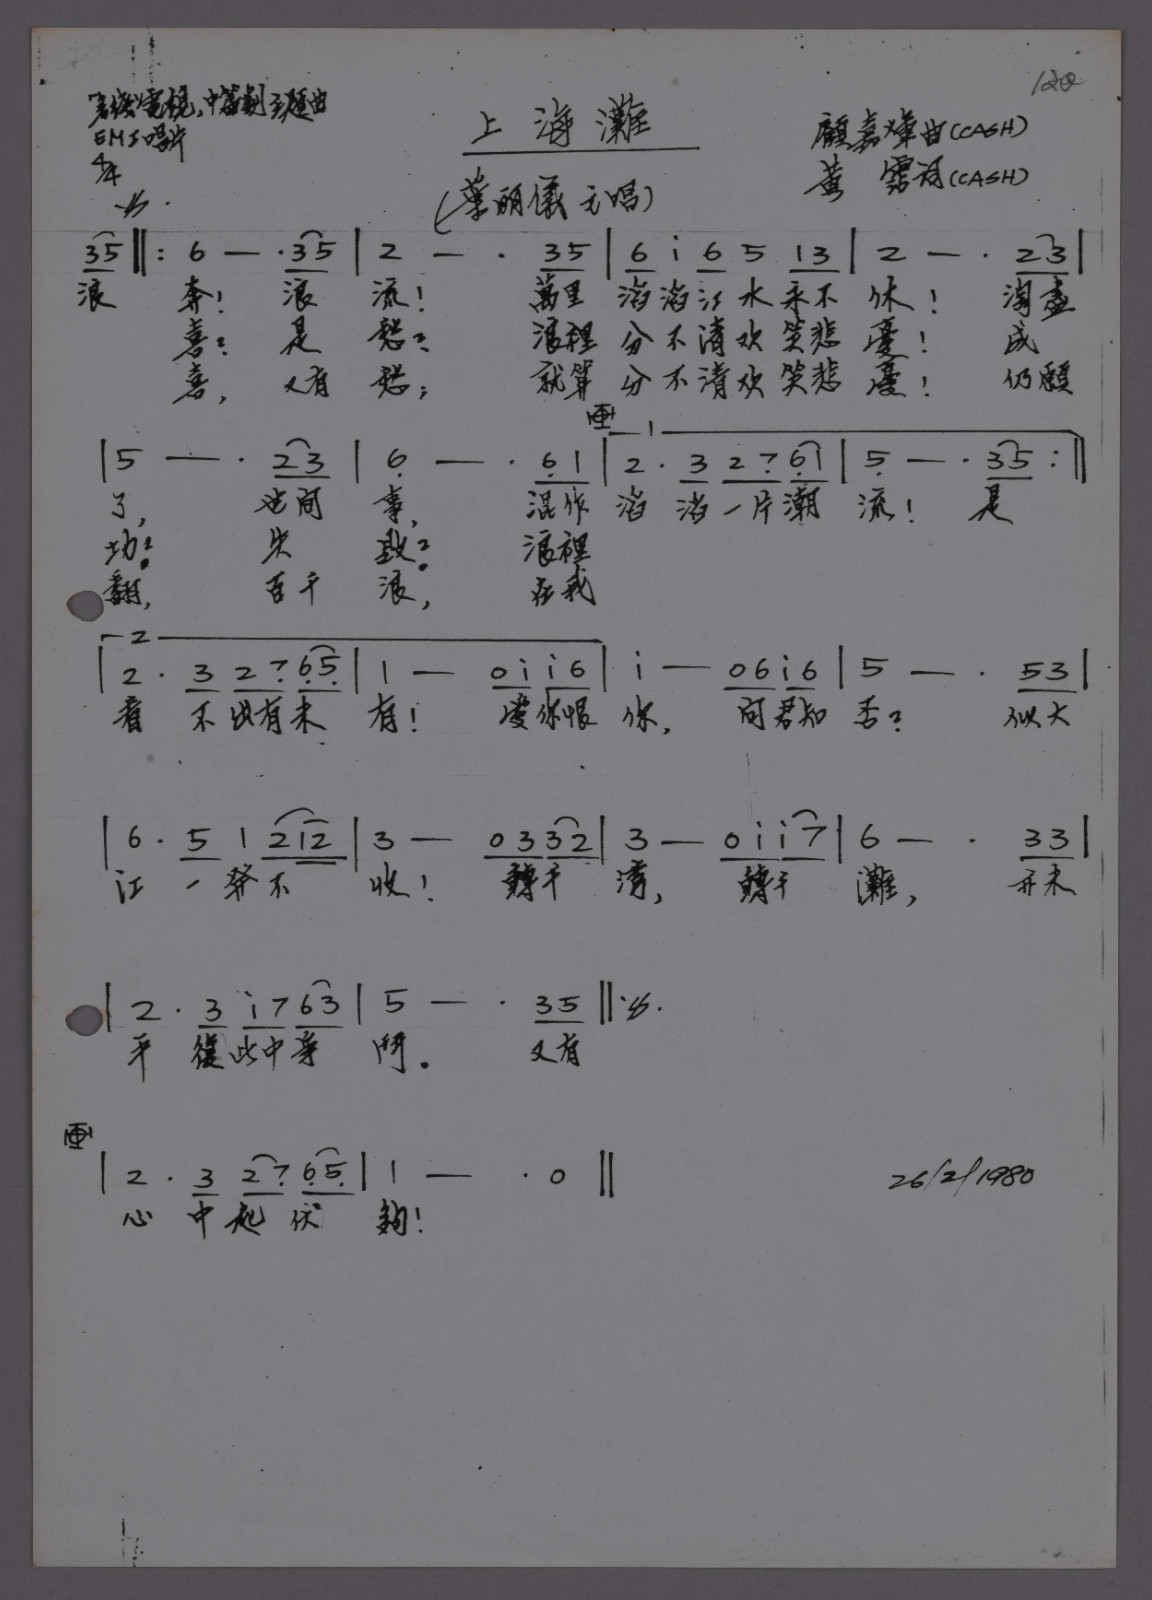 120
無綫電視,中篇劇主題曲
EMI唱片
4/4
上海灘
顧嘉煇曲(CASH)
黃霑詞(CASH)
(葉麗儀主唱)
35 ‖: 6 — · 35 | 2 — · 35 | 6 i 6 5 13 | 2 — · 23 |
浪 奔! 浪 流! 萬里 滔滔江水永不 休! 淘盡
喜? 是 愁? 浪裡 分不清欢笑悲 憂! 成
喜, 又有 愁; 就算 分不清欢笑悲 憂! 仍願
| 5 — · 23 | 6̣ — · 6̣1 | 2 · 3 27̣ 6̣1 | 5̣ — · 35 :‖
了, 世间 事, 混作 滔 滔一片潮 流! 是
功? 失 敗? 浪裡
翻, 百千 浪, 在我
| 2 · 3 27̣ 6̣5̣ | 1 — 0i i6 | i — 06 i6 | 5 — · 53 |
看 不出有未 有! 愛你恨 你, 问君知 否? 似大
| 6 · 5 1 212 | 3 — 03 32 | 3 — 0i i7 | 6 — · 33 |
江 一發不 收! 轉千 灣, 轉千 灘, 亦未
| 2 · 3 i7 63 | 5 — · 35 ‖
平 復此中爭 鬥。 又有
| 2 · 3 27̣ 6̣5̣ | 1 — · 0 ‖
心 中起伏 夠!
26/2/1980